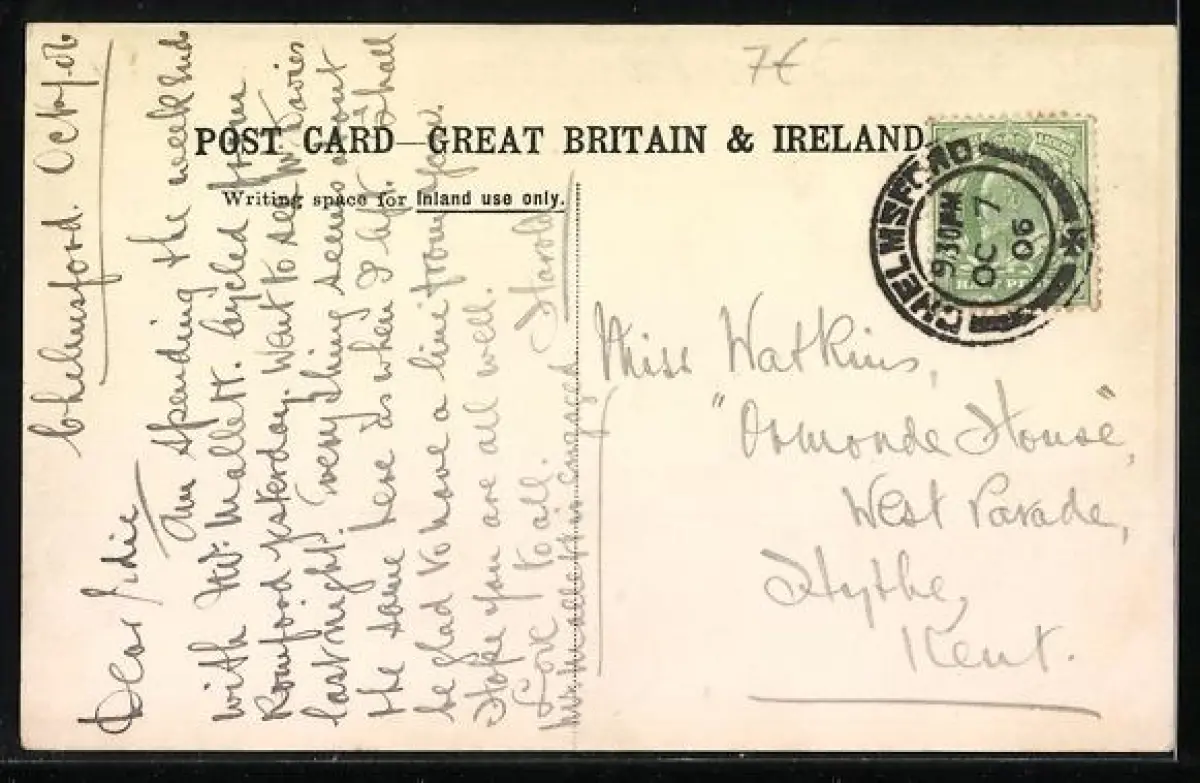 7€
POST CARD—GREAT BRITAIN & IRELAND.
Writing space for Inland use only.
CHELMSFORD
9.30PM
OC 7
06
HALF PE
Chelmsford. Oct 7/06
Dear Edie
Am spending the week End
with Mr. Mallett. Cycled from
Romford yesterday. Went to see Mr Davies
last night. Every thing seems about
the same here as when I left. Shall
be glad to have a line from you.
Hope you are all well.
Love to all. Harold
Mr Mallett is engaged
Miss Watkins,
"Ormonde House",
West Parade,
Hythe,
Kent.